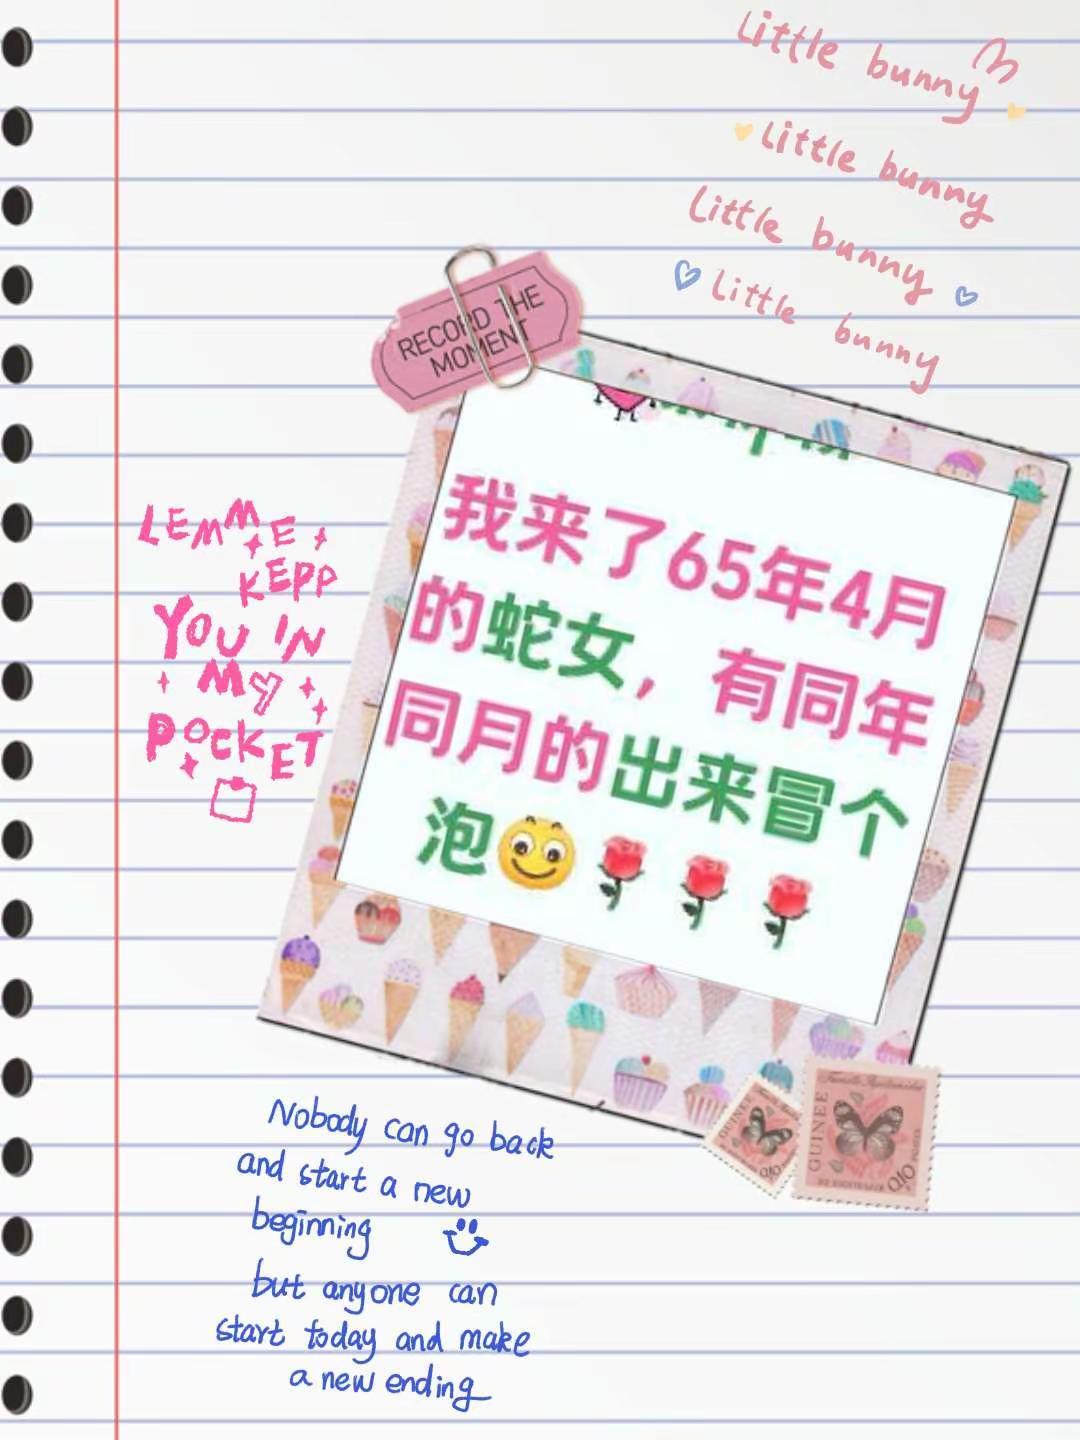 Little bunny
Little bunny
Little bunny
Little bunny
RECORD THE
MOMENT
我来了65年4月
的蛇女，有同年
同月的出来冒个
泡
LEMME
KEPP
YOU IN
MY
POCKET
Nobody can go back
and start a new
beginning
but anyone can
start today and make
a new ending
GUINEE
0,10
GUINEE
POSTES
0,10